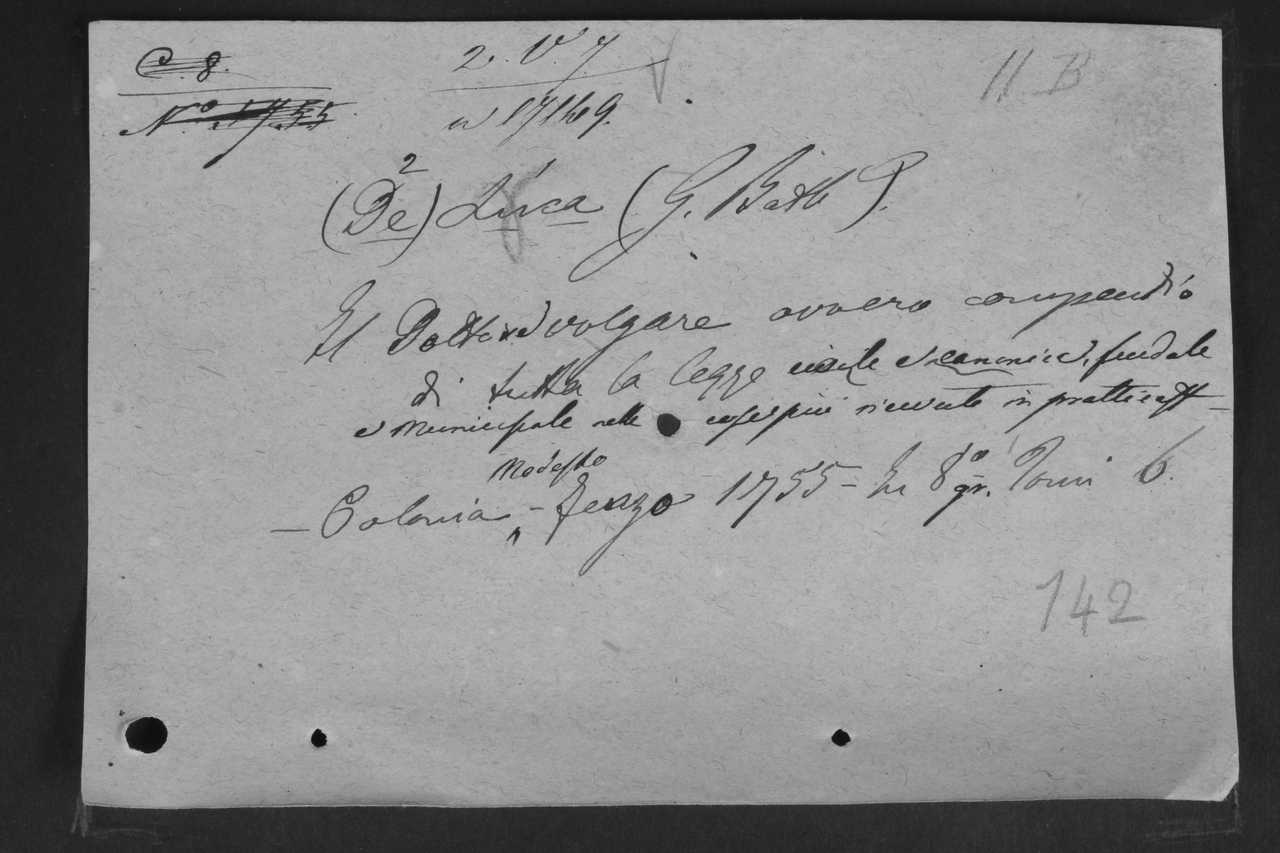 C. 8.
2. V. 7
11. B
N.o 1755
n 17169.
2
(De) Luca (G. Batt P.
Il Dottore volgare ovvero compendio
di tutta la legge civile e canonica, feudale
e Municipale nelle cose più ricevute in prattica
Modesto
– Colonia, – Fenzo 1755 – In 8o gr. Tomi 6.
142